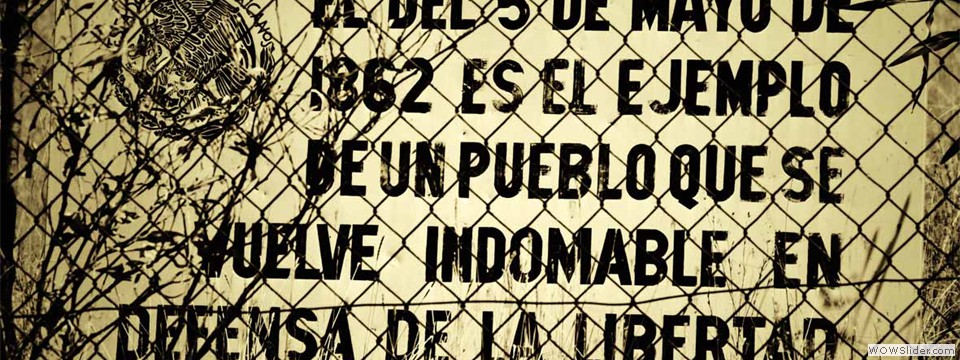 EL DEL 5 DE MAYO DE
1862 ES EL EJEMPLO
DE UN PUEBLO QUE SE
VUELVE INDOMABLE EN
DEFENSA DE LA LIBERTAD
WOWSlider.com